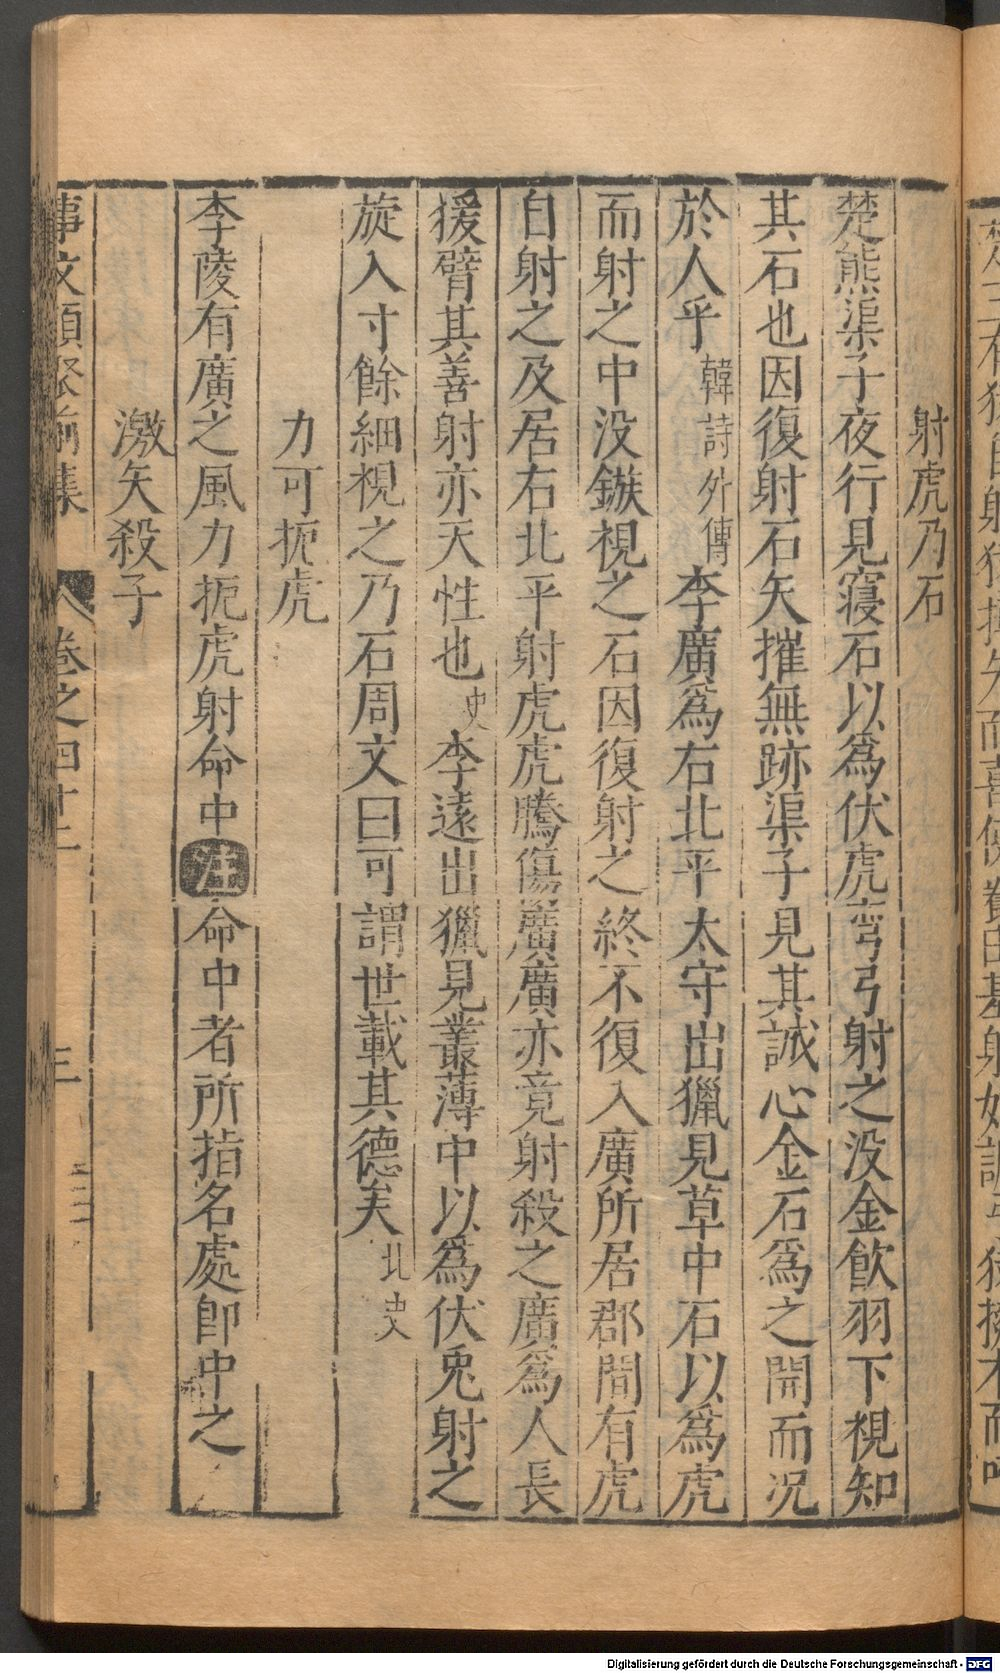 射虎乃石
楚熊渠子夜行見寢石以爲伏虎彎弓射之没金飲羽下視知
其石也因復射石矢摧無跡渠子見其誠心金石爲之開而况
於人乎韓詩外傳李廣爲右北平太守出獵見草中石以爲虎
而射之中没鏃視之石因復射之終不復入廣所居郡間有虎
自射之及居右北平射虎虎騰傷廣廣亦竟射殺之廣爲人長
猨臂其善射亦天性也史李遠出獵見叢薄中以爲伏兎射之
旋入寸餘細視之乃石周文曰可謂世載其德矣北史
力可扼虎
李陵有廣之風力扼虎射命中注命中者所指名處即中之
激矢殺子
事文類聚前集 卷之四十二 三
Digitalisierung gefördert durch die Deutsche Forschungsgemeinschaft - DFG